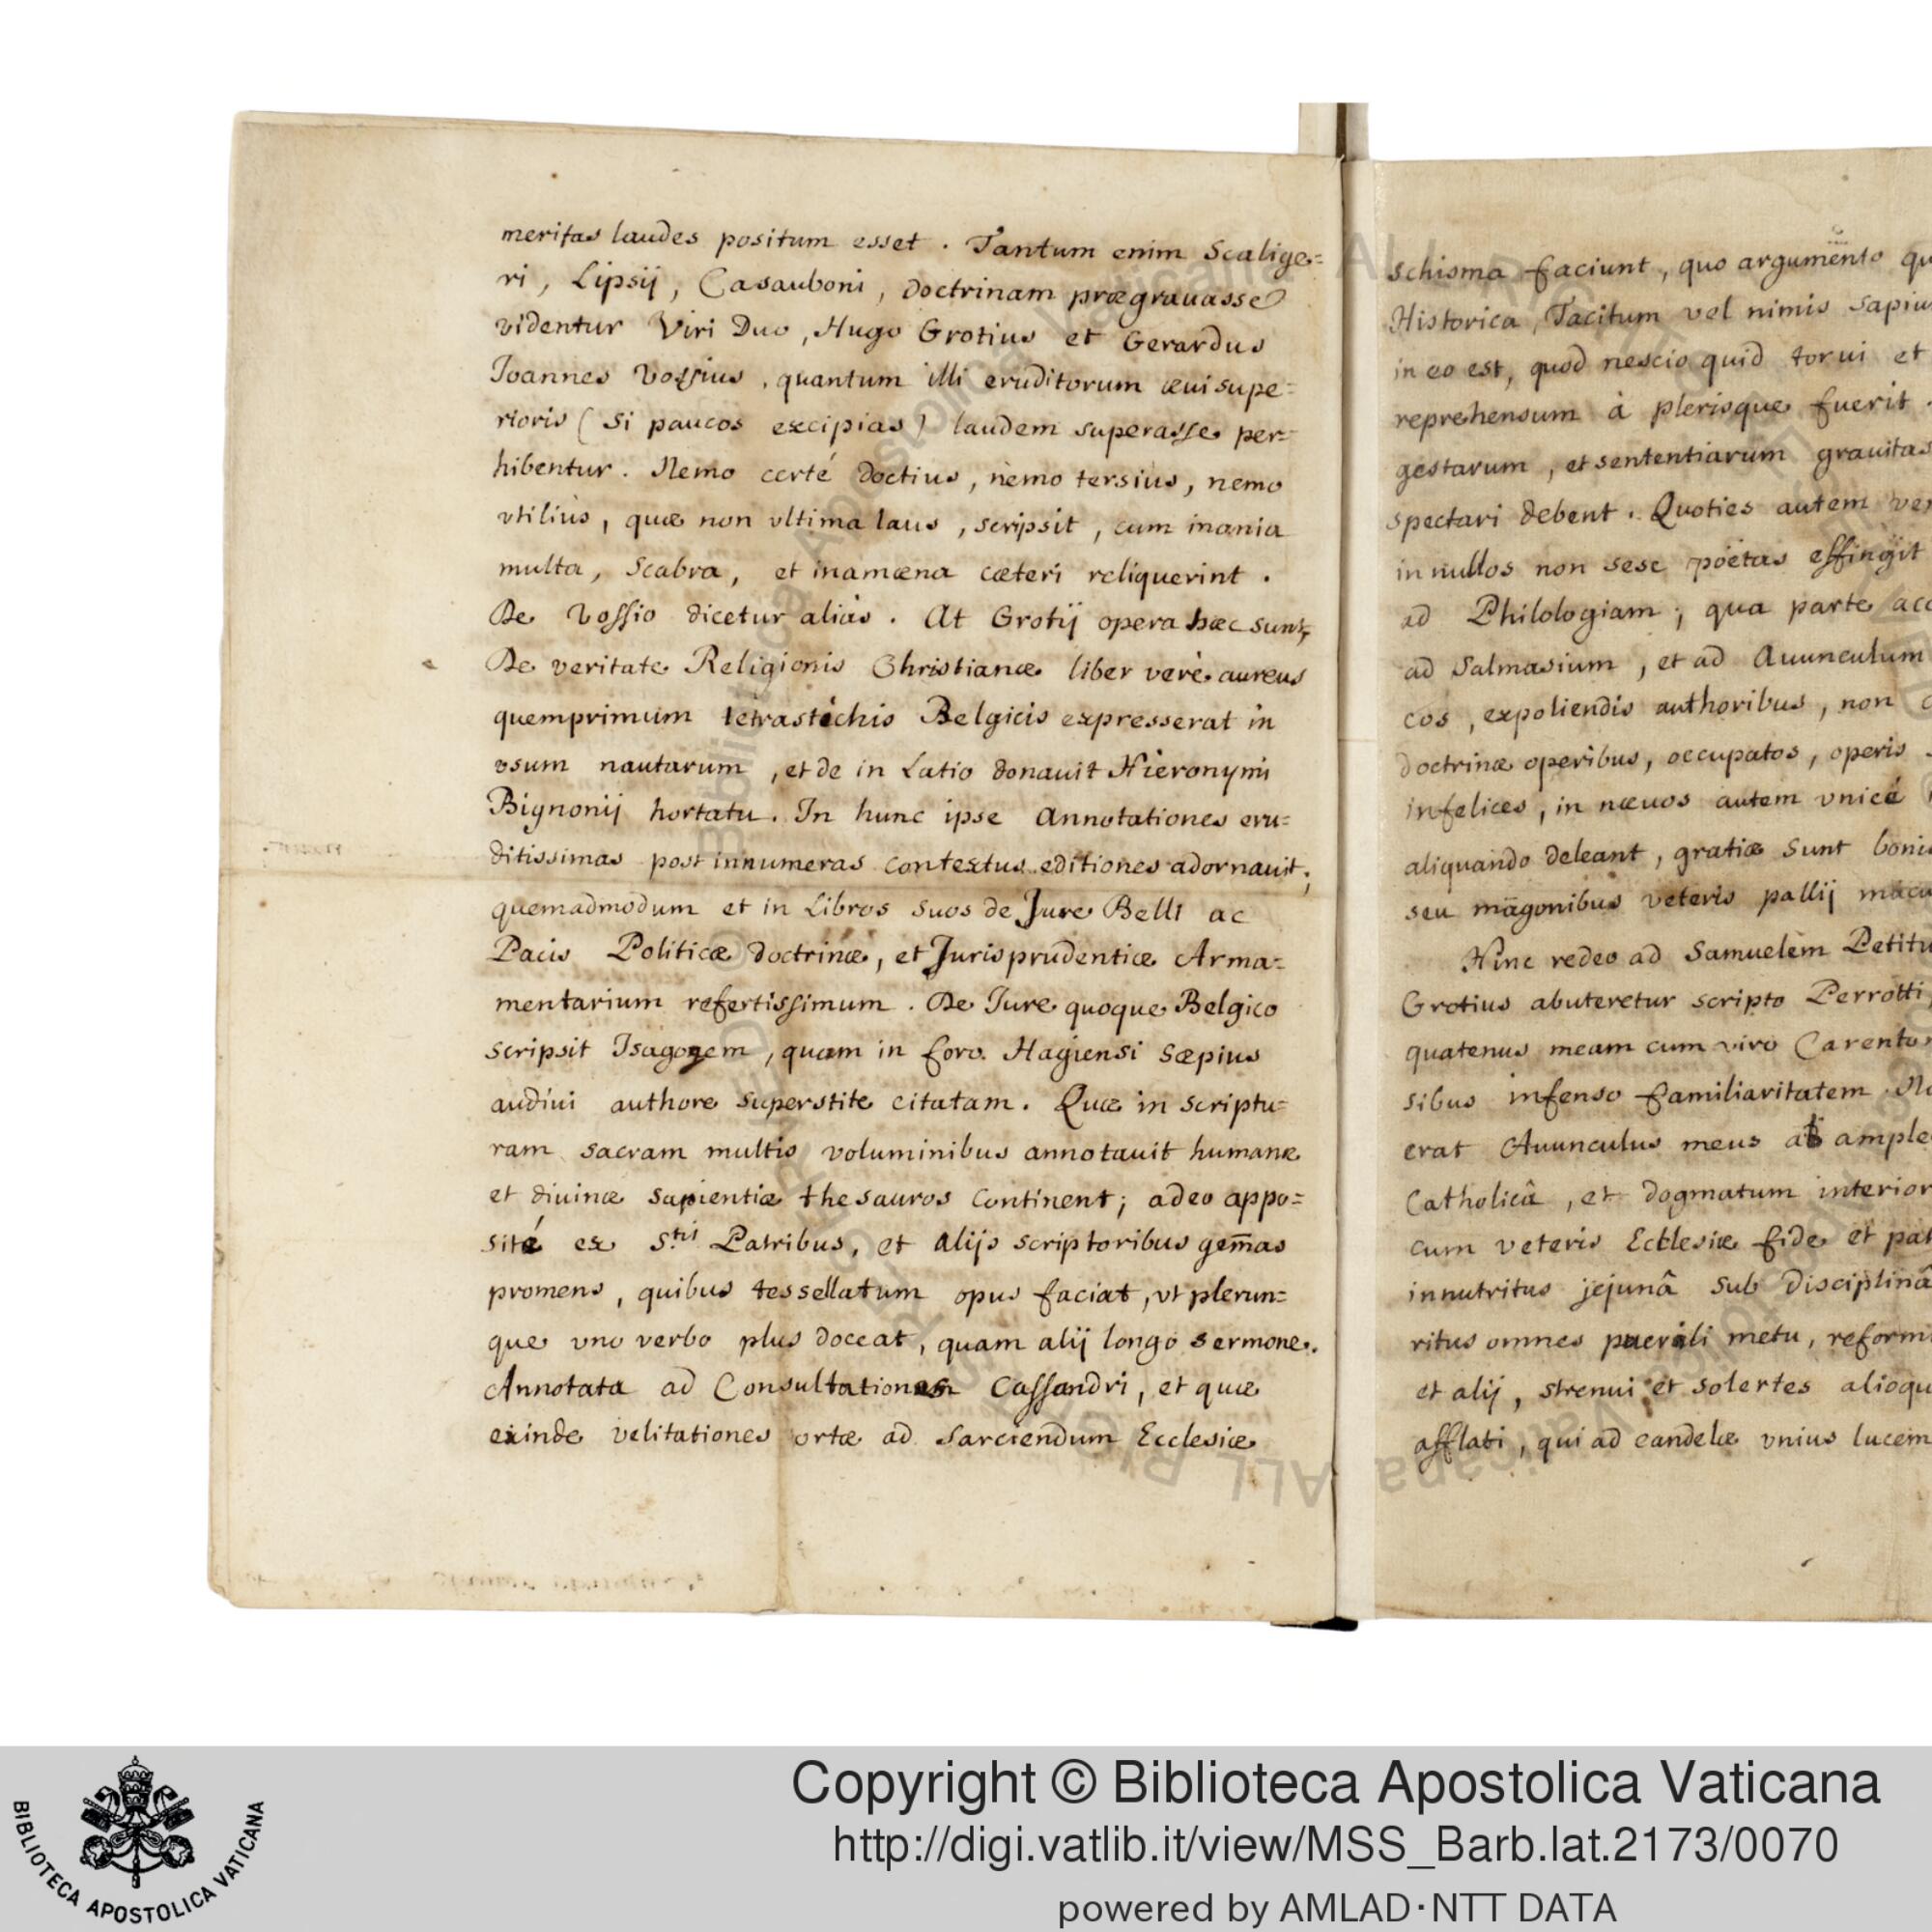 meritas laudes positum esset. Tantum enim Scalige=
ri, Lipsij, Casauboni, doctrinam prægrauasse
videntur Viri Duo, Hugo Grotius et Gerardus
Joannes Vossius, quantum illi eruditorum æui supe=
rioris (Si paucos excipias) laudem superasse per=
hibentur. Nemo certé doctius, nemo tersius, nemo
vtiliùs, quæ non vltima laus, scripsit, cum inania
multa, Scabra, et inamæna cæteri reliquerint.
De Vossio dicetur aliàs. At Grotij opera hæc sunt,
De veritate Religionis Christianæ liber verè aureus
quemprimum tetrastichis Belgicis expresserat in
vsum nautarum, et de in Latio donauit Hieronymi
Bignonij hortatu. In hunc ipse Annotationes eru=
ditissimas post innumeras contextus editiones adornauit;
quemadmodum et in Libros suos de Jure Belli ac
Pacis Politicæ doctrinæ, et Jurisprudentiæ Arma=
mentarium refertissimum. De Jure quoque Belgico
scripsit Isagogem, quam in foro Hagiensi sæpius
audiui authore superstite citatam. Quæ in scriptu=
ram sacram multis voluminibus annotauit humanæ
et diuinæ sapientiæ thesauros continent; adeo appo=
sité ex S.tis Patribus, et alijs scriptoribus gem̄as
promens, quibus tessellatum opus faciat, vt plerun=
que vno verbo plus doceat, quam alij longo sermone.
Annotata ad Consultationem Cassandri, et quæ
exinde velitationes ortæ ad sarciendum Ecclesiæ
schisma faciunt, quo argumento qu
Historica, Tacitum vel nimis sapiu
in eo est, quod nescio quid torui et
reprehensum à plerisque fuerit.
gestarum, et sententiarum grauitas
spectari debent. Quoties autem ver
in nullos non sese poëtas effingit
ad Philologiam; qua parte acc
ad Salmasium, et ad Auunculum
cos, expoliendis authoribus, non
doctrinæ operibus, occupatos, operis
infelices, in næuos autem vnicé
aliquando deleant, gratiæ sunt bonis
seu māgonibus veteris pallij macu
Hinc redeo ad Samuelem Petitu
Grotius abuteretur scripto Perrotti,
quatenus meam cum viro Carenton
sibus infenso familiaritatem. N
erat Auunculus meus ab ample
Catholicâ, et dogmatum interior
cum veteris Ecclesiæ fide et pat
innutritus jejunâ sub disciplinâ
ritus omnes puerili metu, reform
et alij, strenui et solertes alioqu
afflati, qui ad candelæ vnius lucem
BIBLIOTECA APOSTOLICA VATICANA
Copyright © Biblioteca Apostolica Vaticana
http://digi.vatlib.it/view/MSS_Barb.lat.2173/0070
powered by AMLAD·NTT DATA